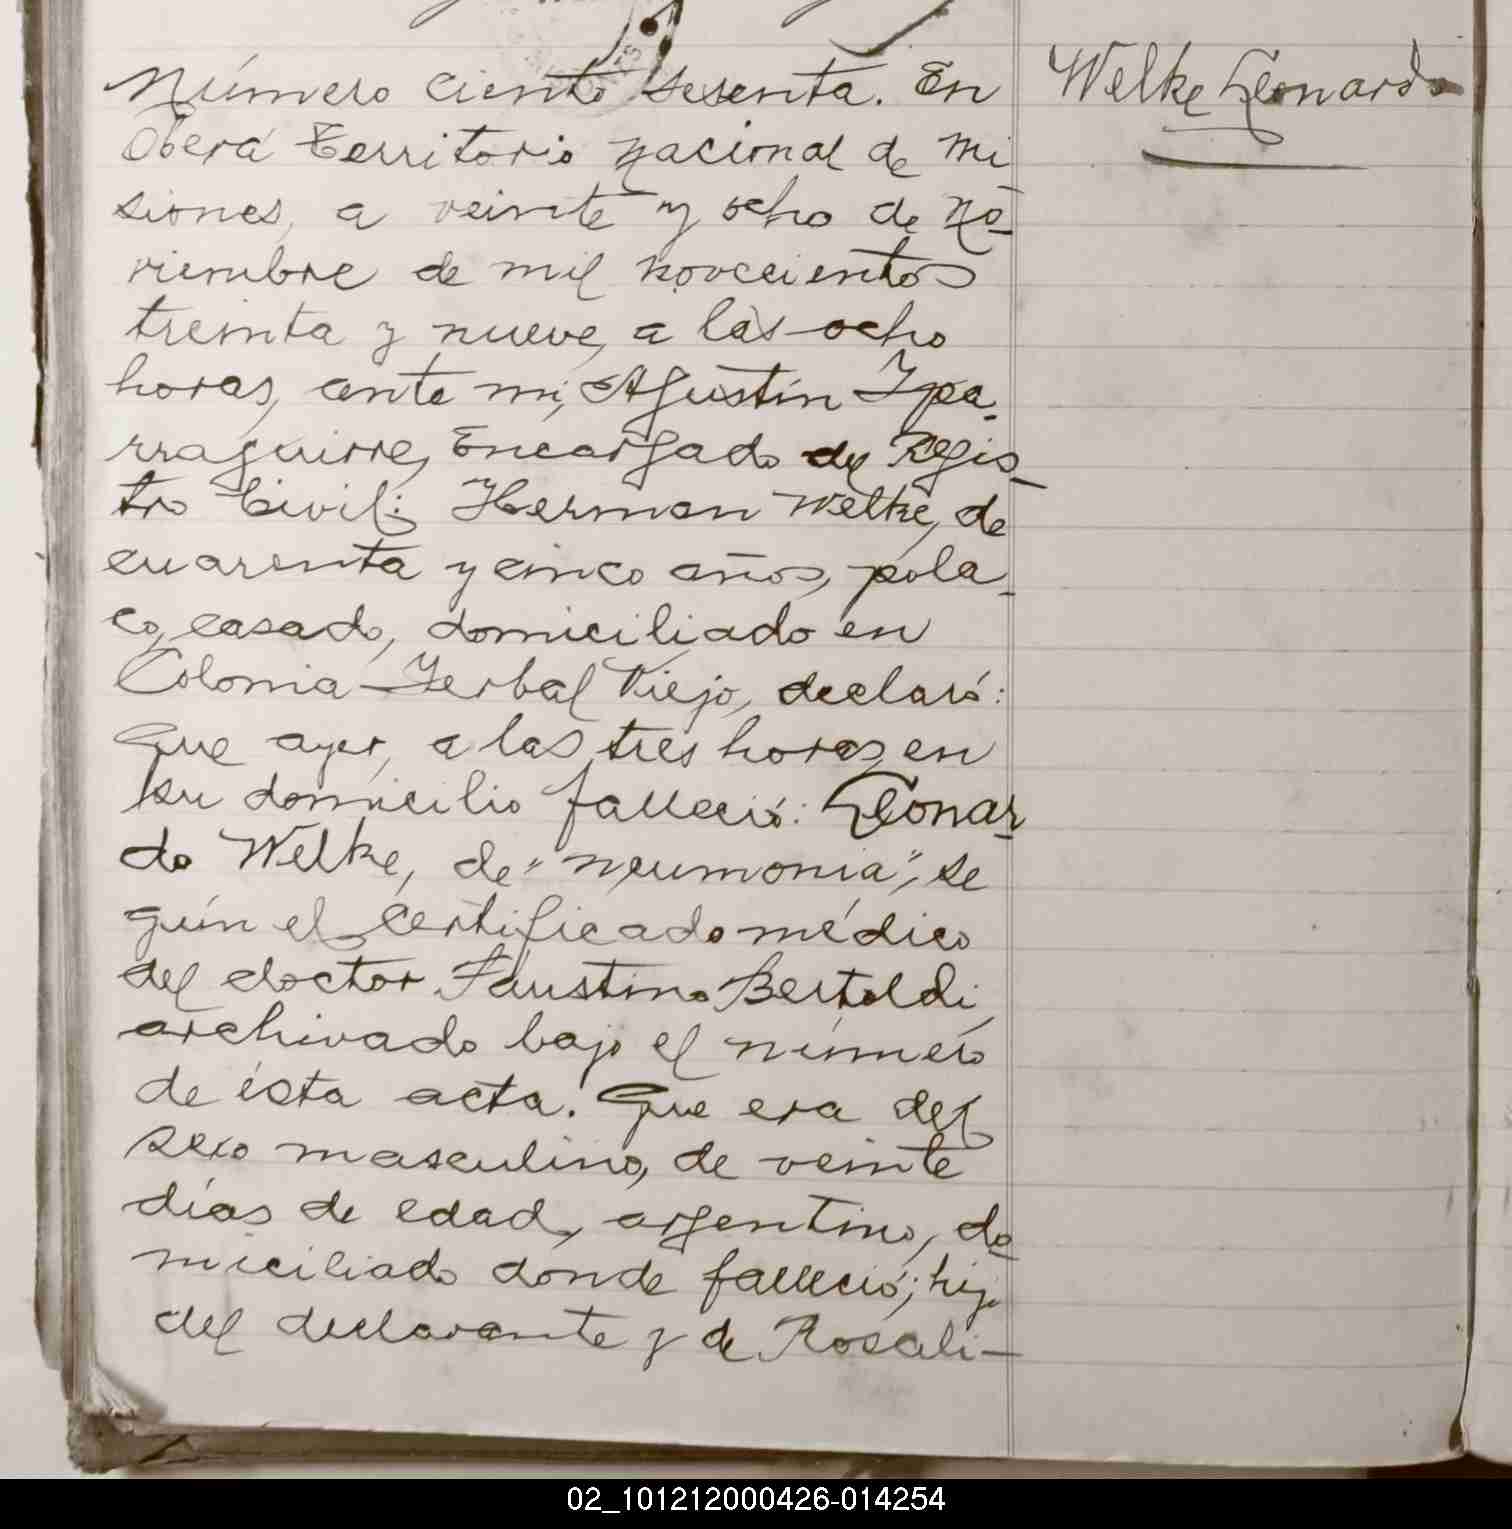 Welke Leonardo
Número ciento sesenta. En
Oberá Territorio Nacional de Mi
siones, a veinte y ocho de No-
viembre de mil novecientos
treinta y nueve, a las ocho
horas, ante mi, Agustín Ypa-
rraguirre, Encargado del Regis-
tro Civil: Herman Welke, de
cuarenta y cinco años, pola-
co, casado, domiciliado en
Colonia Yerbal Viejo, declaró:
Que ayer, a las tres horas, en
su domicilio falleció: Leonar-
do Welke, de "neumonia", se
gún el certificado médico
del doctor Faustino Bertoldi,
archivado bajo el número
de ésta acta. Que era del
sexo masculino, de veinte
días de edad, argentino, do-
miciliado donde falleció; hijo
del declarante y de Rosali-
02_101212000426-014254